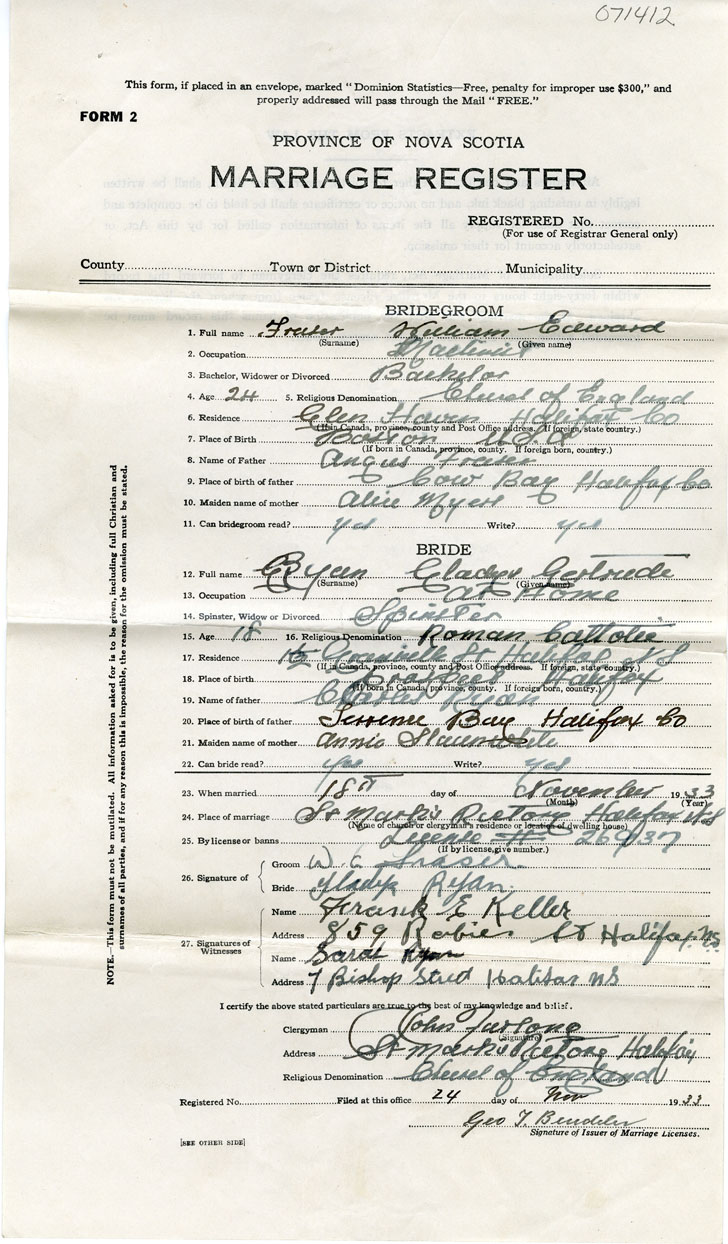 071412
This form, if placed in an envelope, marked "Dominion Statistics—Free, penalty for improper use $300," and
properly addressed will pass through the Mail "FREE."
FORM 2
PROVINCE OF NOVA SCOTIA
MARRIAGE REGISTER
REGISTERED No.
(For use of Registrar General only)
County Town or District Municipality
BRIDEGROOM
1. Full name Fraser William Edward
(Surname) (Given name)
2. Occupation
3. Bachelor, Widower or Divorced Bachelor
4. Age 24 5. Religious Denomination Church of England
6. Residence Glen Haven Halifax Co
(If in Canada, province, county and Post Office address. If foreign, state country.)
7. Place of Birth Boston U.S.A
(If born in Canada, province, county. If foreign born, country.)
8. Name of Father Angus Fraser
9. Place of birth of father Cow Bay Halifax Co
10. Maiden name of mother Alice Myers
11. Can bridegroom read? yes Write? yes
BRIDE
12. Full name Ryan Gladys Gertrude
(Surname) (Given name)
13. Occupation At Home
14. Spinster, Widow or Divorced Spinster
15. Age 18 16. Religious Denomination Roman Catholic
17. Residence Granville St Halifax N S
(If in Canada, province, county and Post Office address. If foreign, state country.)
18. Place of birth Halifax
(If born in Canada, province, county. If foreign born, country.)
19. Name of father Ryan
20. Place of birth of father Terrence Bay Halifax Co
21. Maiden name of mother Annie Slaunwhite
22. Can bride read? yes Write? yes
23. When married 18th day of November 1933
(Month) (Year)
24. Place of marriage St Mark's Rectory Halifax N S
(Name of church or clergyman's residence or location of dwelling house)
25. By license or banns License No
(If by license, give number.)
26. Signature of
Groom W. E Fraser
Bride Gladys Ryan
27. Signatures of Witnesses
Name Frank E Keller
Address 859 Robie St Halifax NS
Name Sarah Ryan
Address 7 Bishop Street Halifax NS
I certify the above stated particulars are true to the best of my knowledge and belief.
Clergyman John Furlong
(Signature)
Address St Marks Rectory Halifax
Religious Denomination Church of England
Registered No. Filed at this office 24 day of Nov 1933
Geo T.
Signature of Issuer of Marriage Licenses.
[SEE OTHER SIDE]
NOTE.—This form must not be mutilated. All information asked for is to be given, including full Christian and
surnames of all parties, and if for any reason this is impossible, the reason for the omission must be stated.